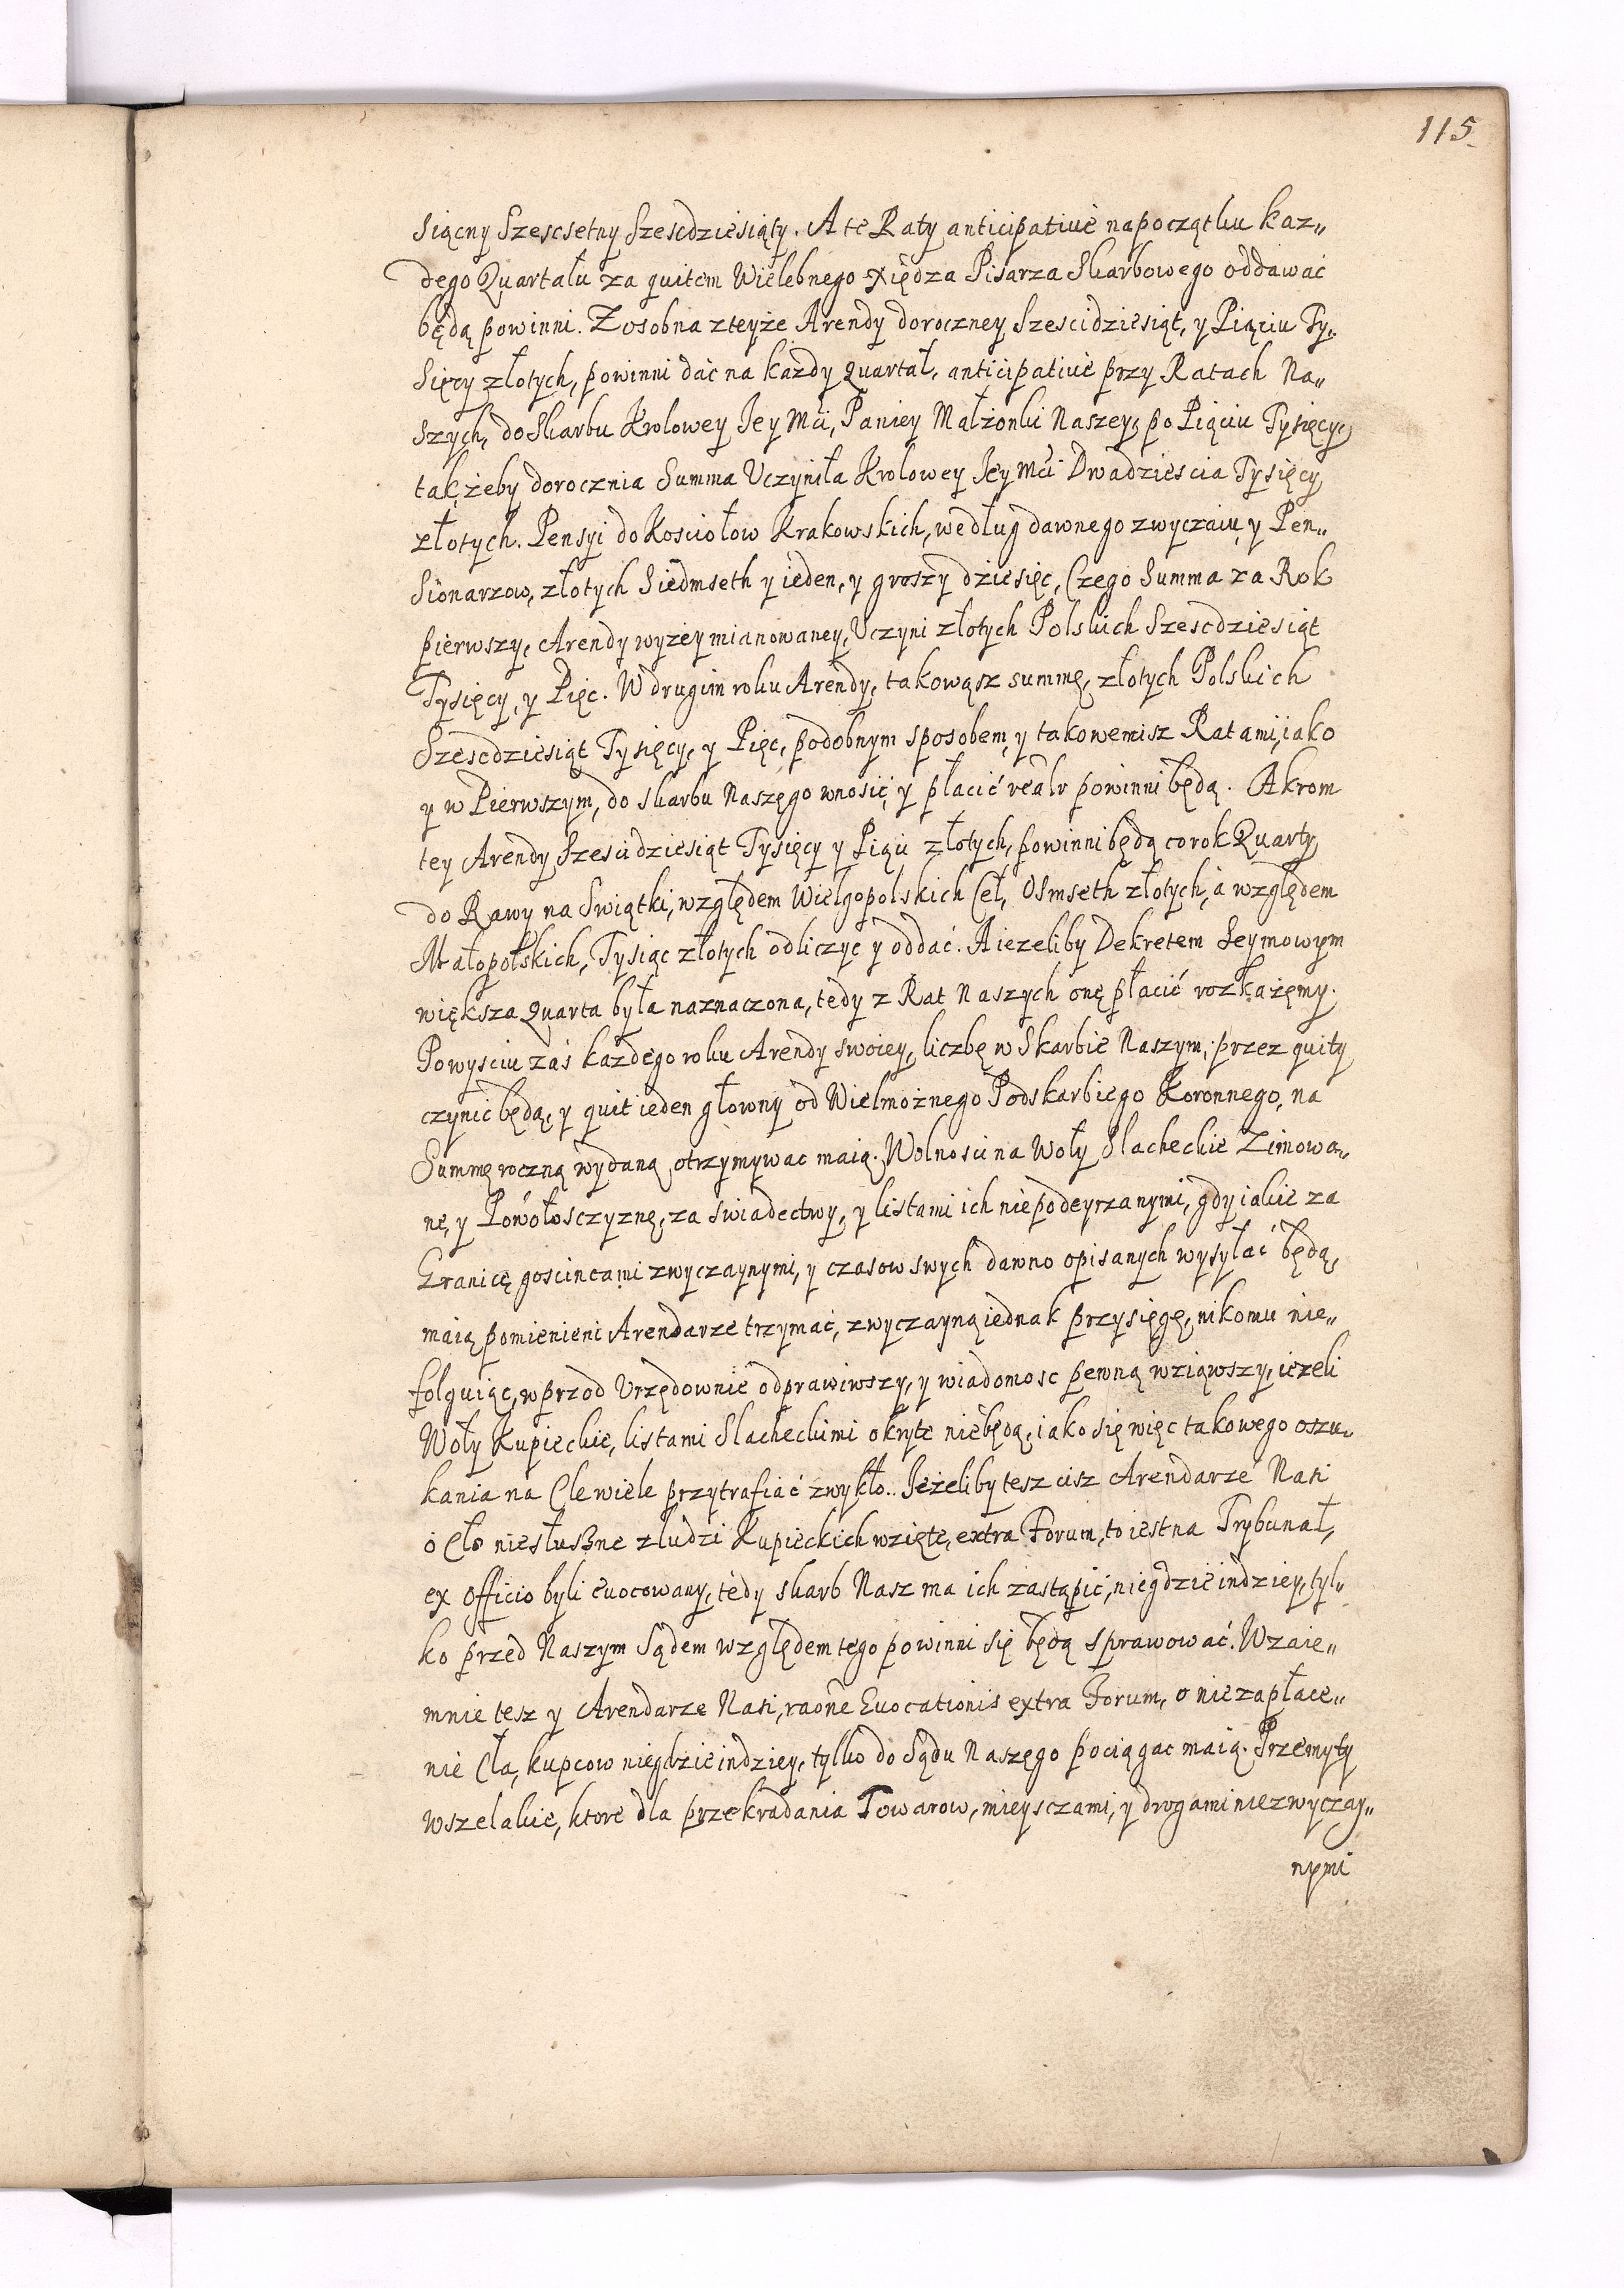 115.
Siącny Szescsetny Szescdziesiąty. A te Raty anticipativè na początku kaz„
dego Quartału za quitem Wielebnego Xiędza Pisarza Skarbowego oddawać
będą powinni. Zosobna zteyże Arendy doroczney Szescidziesiąt, y Piąciu Ty„
Sięcy złotych, powinni dać na każdy Quartał, anticipativè przy Ratach Na„
Szych, do Skarbu Krolowey Jey Mci, Paniey Małżonki Naszey, po Piąciu Tysięcy,
tak żeby dorocznia Summa Uczyniła Krolowey Jey Mci Dwadziescia Tysięcy
złotych. Pensyi do Kosciołow Krakowskich, według dawnego zwyczaiu, y Pen„
Sionarzow, złotych Siedmseth y ieden, y groszy dziesięc, Czego Summa za Rok
pierwszy, Arendy wyzey mianowaney, Uczyni złotych Polskich Szescdziesiąt
Tysięcy, y Pięc. W drugim roku Arendy, takowąsz summę, złotych Polskich
Szescdziesiąt Tysięcy, y Pięc, podobnym sposobem, y takowemisz Ratami, iako
y w Pierwszym, do Skarbu Naszego wnosić, y płacić realr powinni będą. Akrom
tey Arendy Szescidziesiąt Tysięcy y Piąci złotych, powinni będą co rok Quarty
do Rawy na Swiątki, względem Wielgopolskich Ceł, Osmseth złotych, à względem
Małopolskich, Tysiąc złotych odliczyc y oddać. A iezeliby Dekretem Seymowym
większa Quarta była naznaczona, tedy z Rat Naszych onę płacić rozkażemy.
Powysciu zaś każdego roku Arendy swoiey, liczbę w Skarbie Naszym, przez quity
czynic będą, y quit ieden głowny od Wielmożnego Podskarbiego Koronnego, na
Summę roczną wydaną otrzymywac maią. Wolnosci na Woły Slacheckie Zimowa„
ne, y Powołosczyznę, za świadectwy, y listami ich niepodeyrzanymi, gdy iakie za
Granicę goscincami zwyczaynymi, y czasow swych dawno opisanych wysyłać będą,
maią pomienieni Arendarze trzymać, zwyczayną iednak przysięgę, nikomu nie„
folguiąc, wprzod Urzędownie odprawiwszy, y wiadomosc pewną wziąwszy, iezeli
Woły Kupieckie, listami Slacheckimi okryte niebędą, iako się więc takowego oszu„
kania na Cle wiele przytrafiać zwykło. Jeżeliby tesz cisz Arendarze Nasi
o Cło niesłuszne z ludzi Kupieckich wzięte, extra Forum, to iest na Trybunał,
ex officio byli evocowany, tedy Skarb Nasz ma ich zastąpić, niegdzie indziey, tyl„
ko przed Naszym Sądem względem tego powinni się będą sprawować. Wzaie„
mnie tesz y Arendarze Nasi, raõne Evocationis extra Forum, o niezapłace„
nie Cła, kupcow niegdzie indziey, tylko do Sądu Naszego pociągac maią. Przemyty
wszelakie, ktore dla przekradania Towarow, mieysczami, y drogami niezwyczay„
nymi